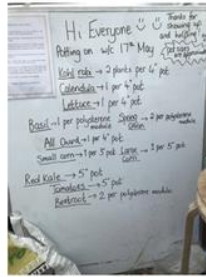 Hi Everyone
Thanks for
showing up
and helping!
Potting on w/c 17th May
Kohl rabi → 2 plants per 4" pot
Calendula → 1 per 4" pot
Lettuce → 1 per 4" pot
Basil → 1 per polystyrene module
Spring Onion → 2 per polystyrene module
All Chard → 1 per 4" pot
Small corn → 1 per 3" pot Large corn → 1 per 5" pot
Red Kale → 5" pot
Tomatoes → 5" pot
Beetroot → 2 per polystyrene module